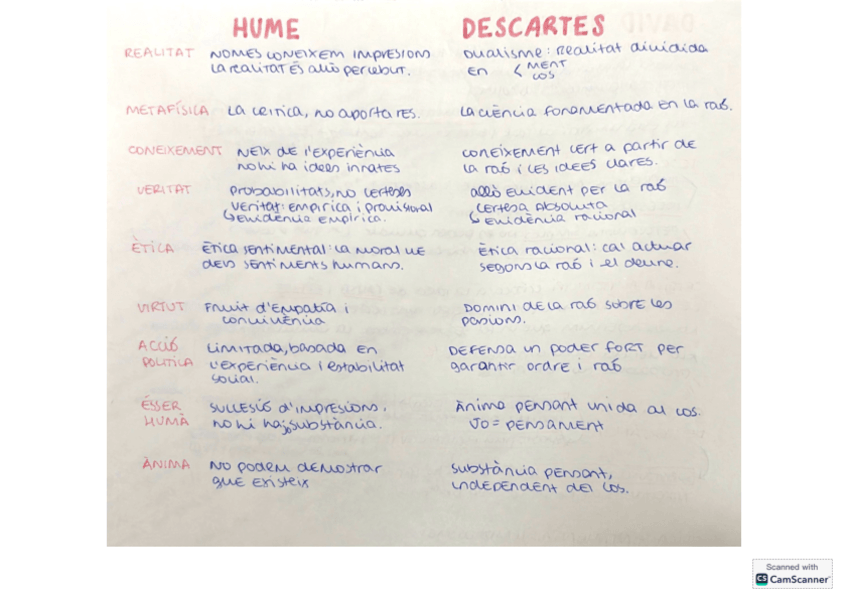 HUME
DESCARTES
REALITAT
NOMÉS CONEIXEM IMPRESIONS
LA REALITAT ÉS allò percebut.
Dualisme: Realitat dividida
en < MENT
COS
METAFÍSICA
La critica, no aporta res.
La ciència fonamentada en la raó.
CONEIXEMENT
NEIX DE l'EXPERIÈNCIA
no hi ha idees innates
CONEIXEMENT CERT a partir de
la raó i les idees clares.
VERITAT
Probabilitats, no certeses
Veritat: empírica i provisional
↳ Evidència empírica.
allò evident per la raó
Certesa absoluta
↳ Evidència racional
ÈTICA
Ètica sentimental: la moral ve
dels sentiments humans.
Ètica racional: cal actuar
segons la raó i el deure.
VIRTUT
Fruit d'Empatia i
convivència
Domini de la raó sobre les
pasions.
ACCIÓ
POLÍTICA
Limitada, basada en
l'experiència i estabilitat
social.
DEFENSA un poder FORT per
garantir ordre i raó
ÉSSER
HUMÀ
SUCCESIÓ d'IMPRESIONS,
no hi ha jo substància.
Ànima pensant unida al cos.
JO = PENSAMENT
ÀNIMA
NO podem demostrar
que existeix
Substància pensant,
independent del cos.
Scanned with
CS CamScanner